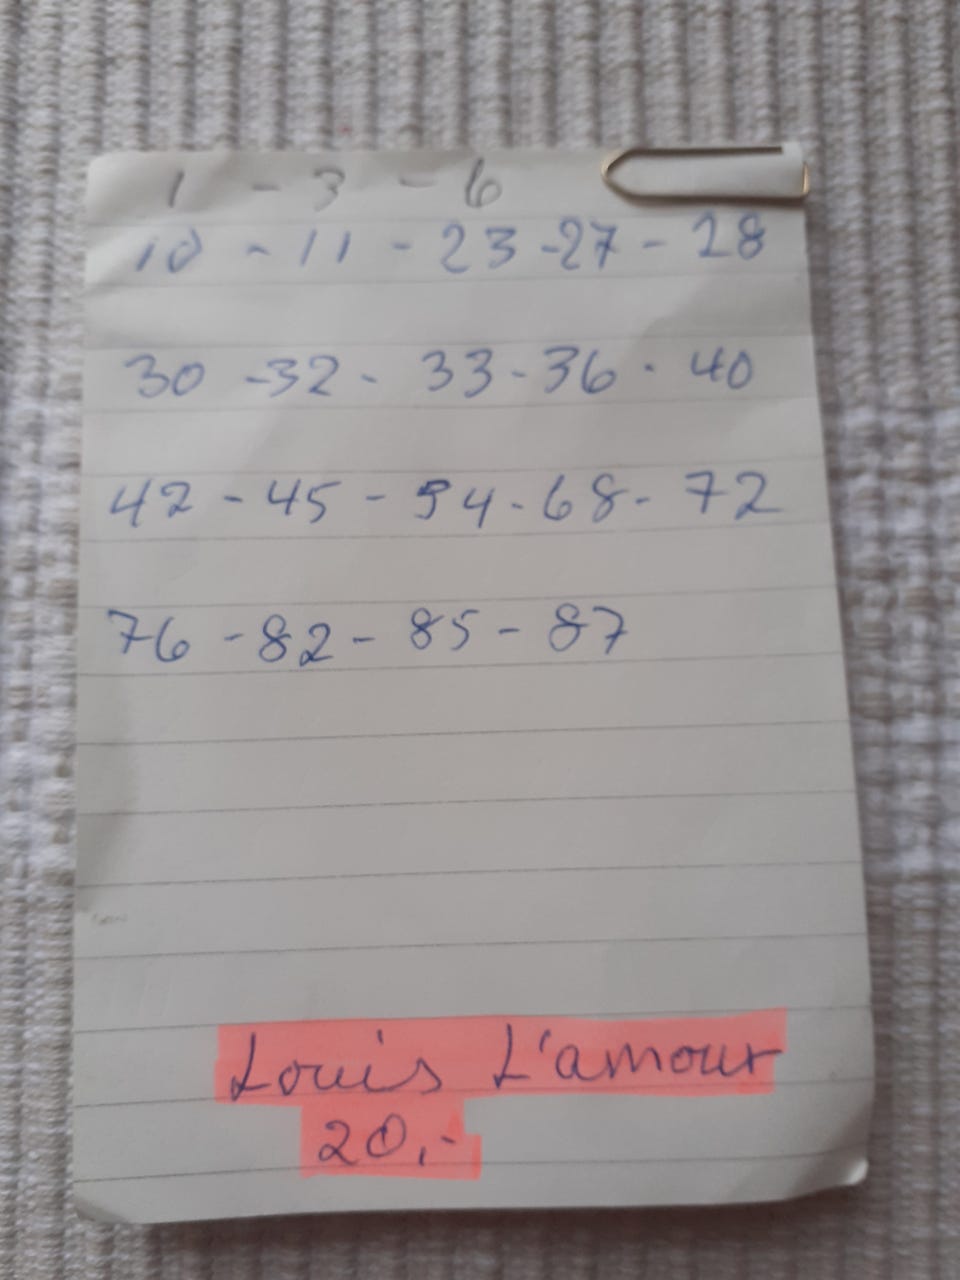 1 - 3 - 6
10 - 11 - 23 - 27 - 28
30 - 32 - 33 - 36 - 40
42 - 45 - 54 - 68 - 72
76 - 82 - 85 - 87
Louis L'amour
20,-